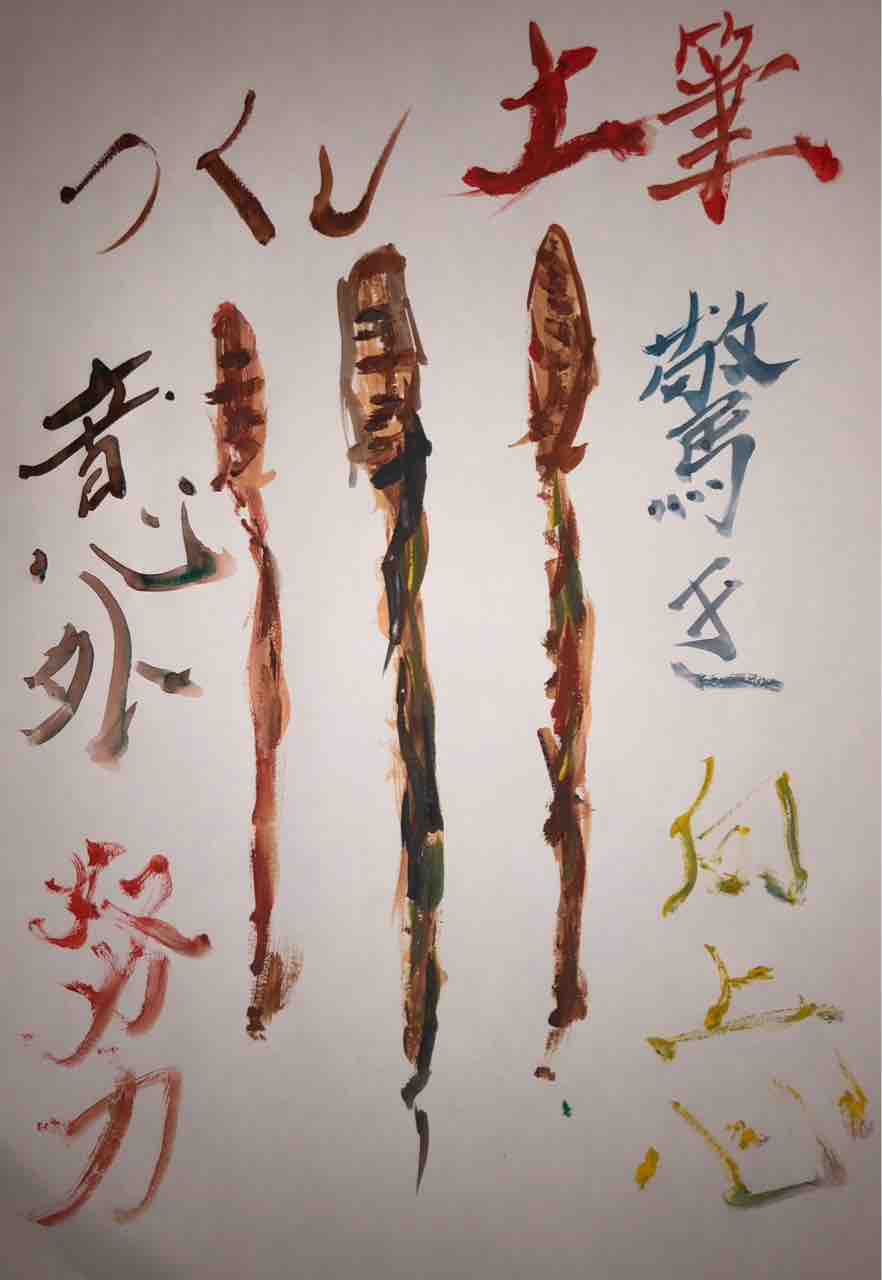 つくし
土筆
驚き
向上心
意外
努力